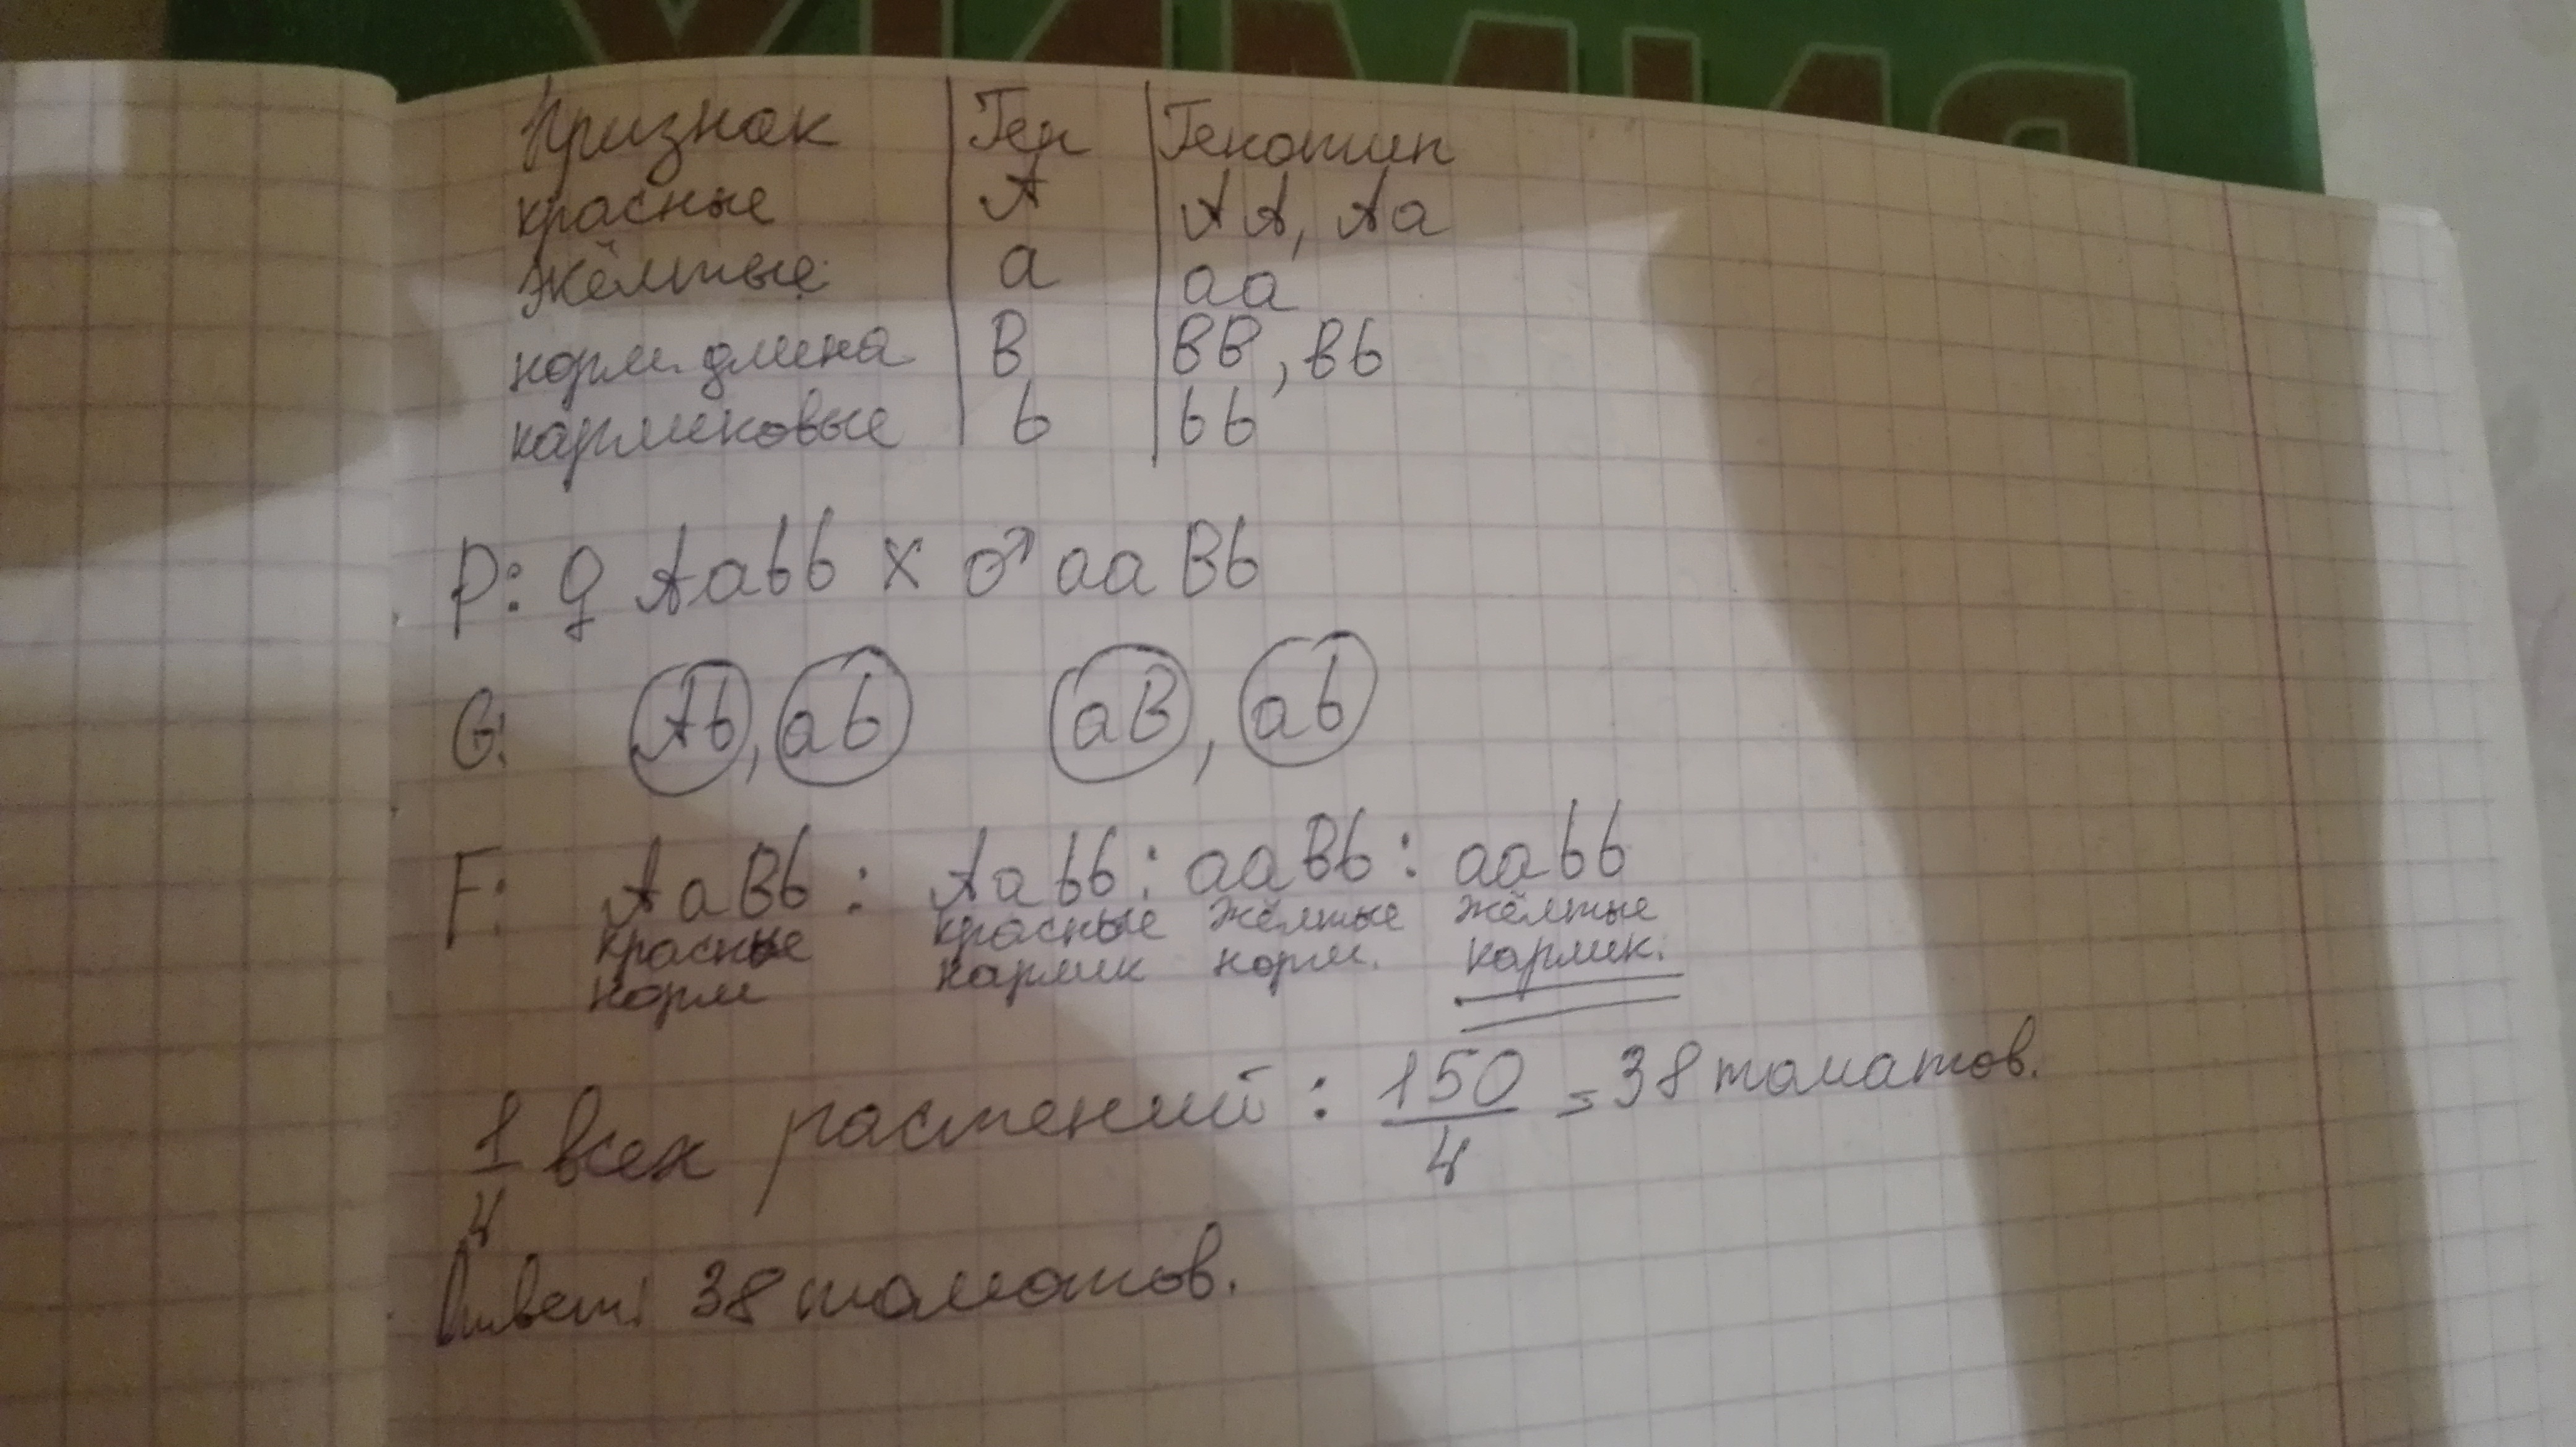 ХИМИЯ
Признак | Ген | Генотип
красные | А | АА, Аа
жёлтые | а | аа
норм. длина | В | ВВ, Вb
карликовые | b | bb
P: ♀ Aabb x ♂ aaBb
G: Ab, ab aB, ab
F: AaBb : Aabb : aaBb : aabb
красные красные жёлтые жёлтые
норм карлик норм. карлик.
1/4 всех растений : 150/4 = 38 томатов.
Ответ: 38 томатов.